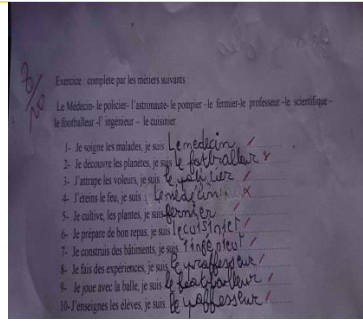 Exercice : complete par les métiers suivants
Le Médecin- le policier- l'astronaute- le pompier -le fermier-le professeur -le scientifique -
le footballeur -l' ingénieur – le cuisinier
1- Je soigne les malades, je suis Le medecin
2- Je decouvre les planètes, je suis le footballeur
3- J'attrape les voleurs, je suis le policier
4- J'éteins le feu, je suis Le medecin
5- Je cultive, les plantes, je suis fermier
6- Je prepare de bon repas, je suis le cuisinier
7- Je construis des bâtiments, je suis
8- Je fais des expériences, je suis le proffesseur
9- Je joue avec la balle, je suis le footballeur
10- J'enseignes les élèves, je suis le proffesseur